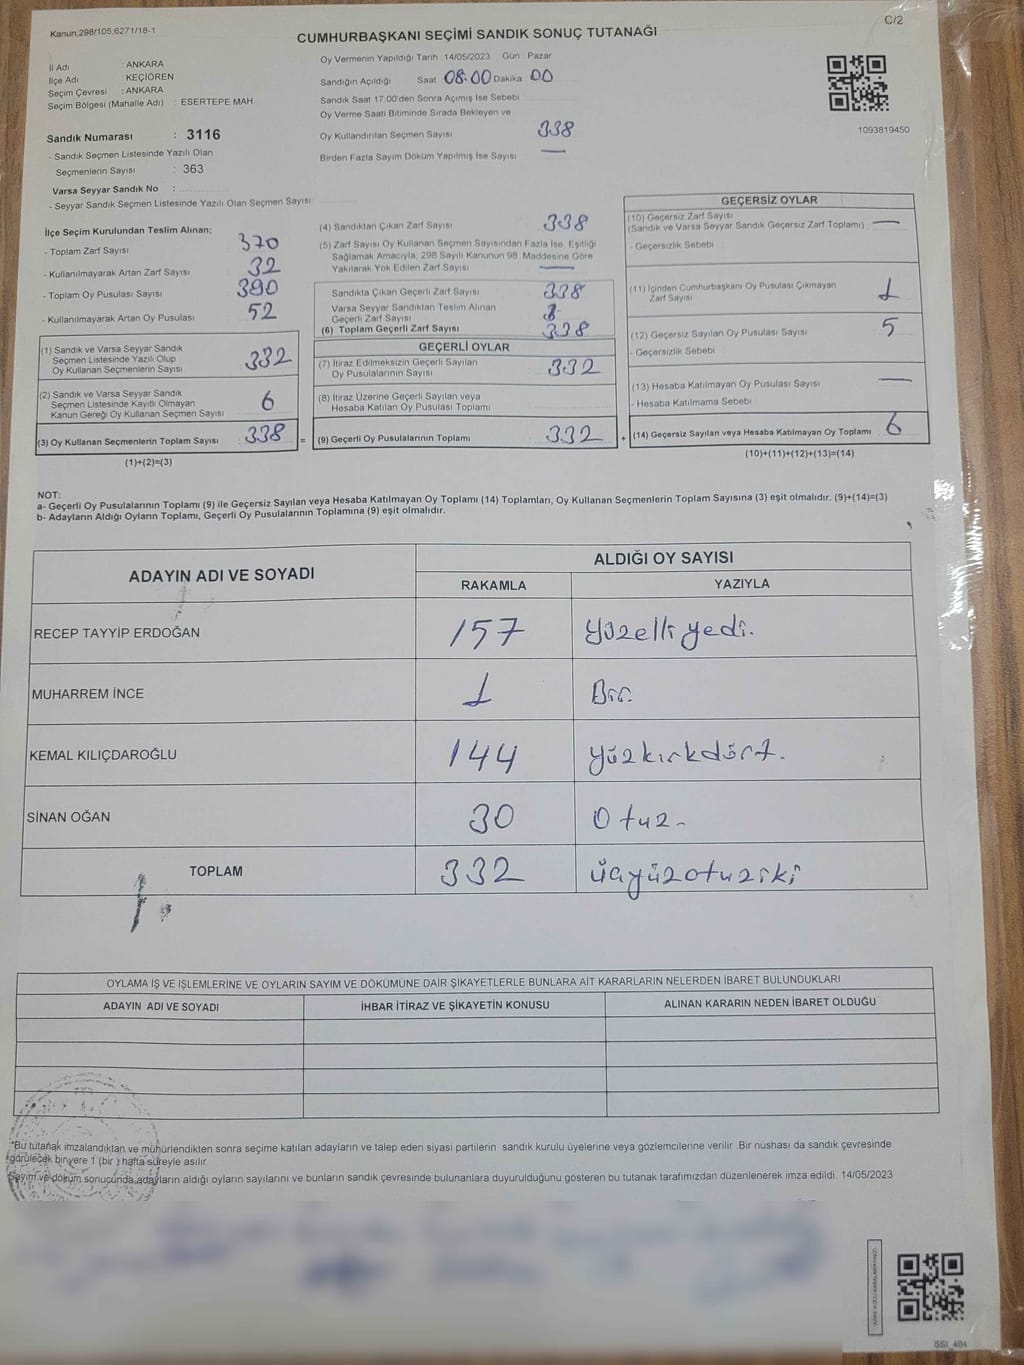 Kanun,298/105,6271/18-1
C/2
CUMHURBAŞKANI SEÇİMİ SANDIK SONUÇ TUTANAĞI
İl Adı : ANKARA
İlçe Adı : KEÇİÖREN
Seçim Çevresi : ANKARA
Seçim Bölgesi (Mahalle Adı) : ESERTEPE MAH
Sandık Numarası : 3116
- Sandık Seçmen Listesinde Yazılı Olan
Seçmenlerin Sayısı : 363
Varsa Seyyar Sandık No :
- Seyyar Sandık Seçmen Listesinde Yazılı Olan Seçmen Sayısı:
Oy Vermenin Yapıldığı Tarih : 14/05/2023 Gün : Pazar
Sandığın Açıldığı Saat 08:00 Dakika 00
Sandık Saat 17.00'den Sonra Açımış İse Sebebi
Oy Verme Saati Bitiminde Sırada Bekleyen ve
Oy Kullandırılan Seçmen Sayısı 338
Birden Fazla Sayım Döküm Yapılmış İse Sayısı : —
1093819450
İlçe Seçim Kurulundan Teslim Alınan;
- Toplam Zarf Sayısı 370
- Kullanılmayarak Artan Zarf Sayısı 32
- Toplam Oy Pusulası Sayısı 390
- Kullanılmayarak Artan Oy Pusulası 52
(1) Sandık ve Varsa Seyyar Sandık
Seçmen Listesinde Yazılı Olup
Oy Kullanan Seçmenlerin Sayısı 332
(2) Sandık ve Varsa Seyyar Sandık
Seçmen Listesinde Kayıtlı Olmayan
Kanun Gereği Oy Kullanan Seçmen Sayısı 6
(3) Oy Kullanan Seçmenlerin Toplam Sayısı 338 =
(1)+(2)=(3)
(4) Sandıktan Çıkan Zarf Sayısı 338
(5) Zarf Sayısı Oy Kullanan Seçmen Sayısından Fazla İse, Eşitliği
Sağlamak Amacıyla; 298 Sayılı Kanunun 98. Maddesine Göre
Yakılarak Yok Edilen Zarf Sayısı —
Sandıkta Çıkan Geçerli Zarf Sayısı 338
Varsa Seyyar Sandıktan Teslim Alınan
Geçerli Zarf Sayısı
(6) Toplam Geçerli Zarf Sayısı 338
GEÇERLİ OYLAR
(7) İtiraz Edilmeksizin Geçerli Sayılan
Oy Pusulalarının Sayısı 332
(8) İtiraz Üzerine Geçerli Sayılan veya
Hesaba Katılan Oy Pusulası Toplamı
(9) Geçerli Oy Pusulalarının Toplamı 332 +
GEÇERSİZ OYLAR
(10) Geçersiz Zarf Sayısı
(Sandık ve Varsa Seyyar Sandık Geçersiz Zarf Toplamı) —
- Geçersizlik Sebebi :
(11) İçinden Cumhurbaşkanı Oy Pusulası Çıkmayan
Zarf Sayısı 1
(12) Geçersiz Sayılan Oy Pusulası Sayısı 5
- Geçersizlik Sebebi :
(13) Hesaba Katılmayan Oy Pusulası Sayısı —
- Hesaba Katılmama Sebebi :
(14) Geçersiz Sayılan veya Hesaba Katılmayan Oy Toplamı 6
(10)+(11)+(12)+(13)=(14)
NOT:
a- Geçerli Oy Pusulalarının Toplamı (9) ile Geçersiz Sayılan veya Hesaba Katılmayan Oy Toplamı (14) Toplamları, Oy Kullanan Seçmenlerin Toplam Sayısına (3) eşit olmalıdır. (9)+(14)=(3)
b- Adayların Aldığı Oyların Toplamı, Geçerli Oy Pusulalarının Toplamına (9) eşit olmalıdır.
ADAYIN ADI VE SOYADI
ALDIĞI OY SAYISI
RAKAMLA YAZIYLA
RECEP TAYYİP ERDOĞAN 157 yüzelli yedi.
MUHARREM İNCE 1 Bir.
KEMAL KILIÇDAROĞLU 144 yüzkırkdört.
SİNAN OĞAN 30 Otuz -
TOPLAM 332 üçyüzotuziki
OYLAMA İŞ VE İŞLEMLERİNE VE OYLARIN SAYIM VE DÖKÜMÜNE DAİR ŞİKAYETLERLE BUNLARA AİT KARARLARIN NELERDEN İBARET BULUNDUKLARI
ADAYIN ADI VE SOYADI İHBAR İTİRAZ VE ŞİKAYETİN KONUSU ALINAN KARARIN NEDEN İBARET OLDUĞU
*Bu tutanak imzalandıktan ve mühürlendikten sonra seçime katılan adayların ve talep eden siyasi partilerin sandık kurulu üyelerine veya gözlemcilerine verilir. Bir nüshası da sandık çevresinde
görülecek bir yere 1 (bir ) hafta süreyle asılır.
Sayım ve döküm sonucunda,adayların aldığı oyların sayılarını ve bunların sandık çevresinde bulunanlara duyurulduğunu gösteren bu tutanak tarafımızdan düzenlenerek imza edildi. 14/05/2023
SSI_404